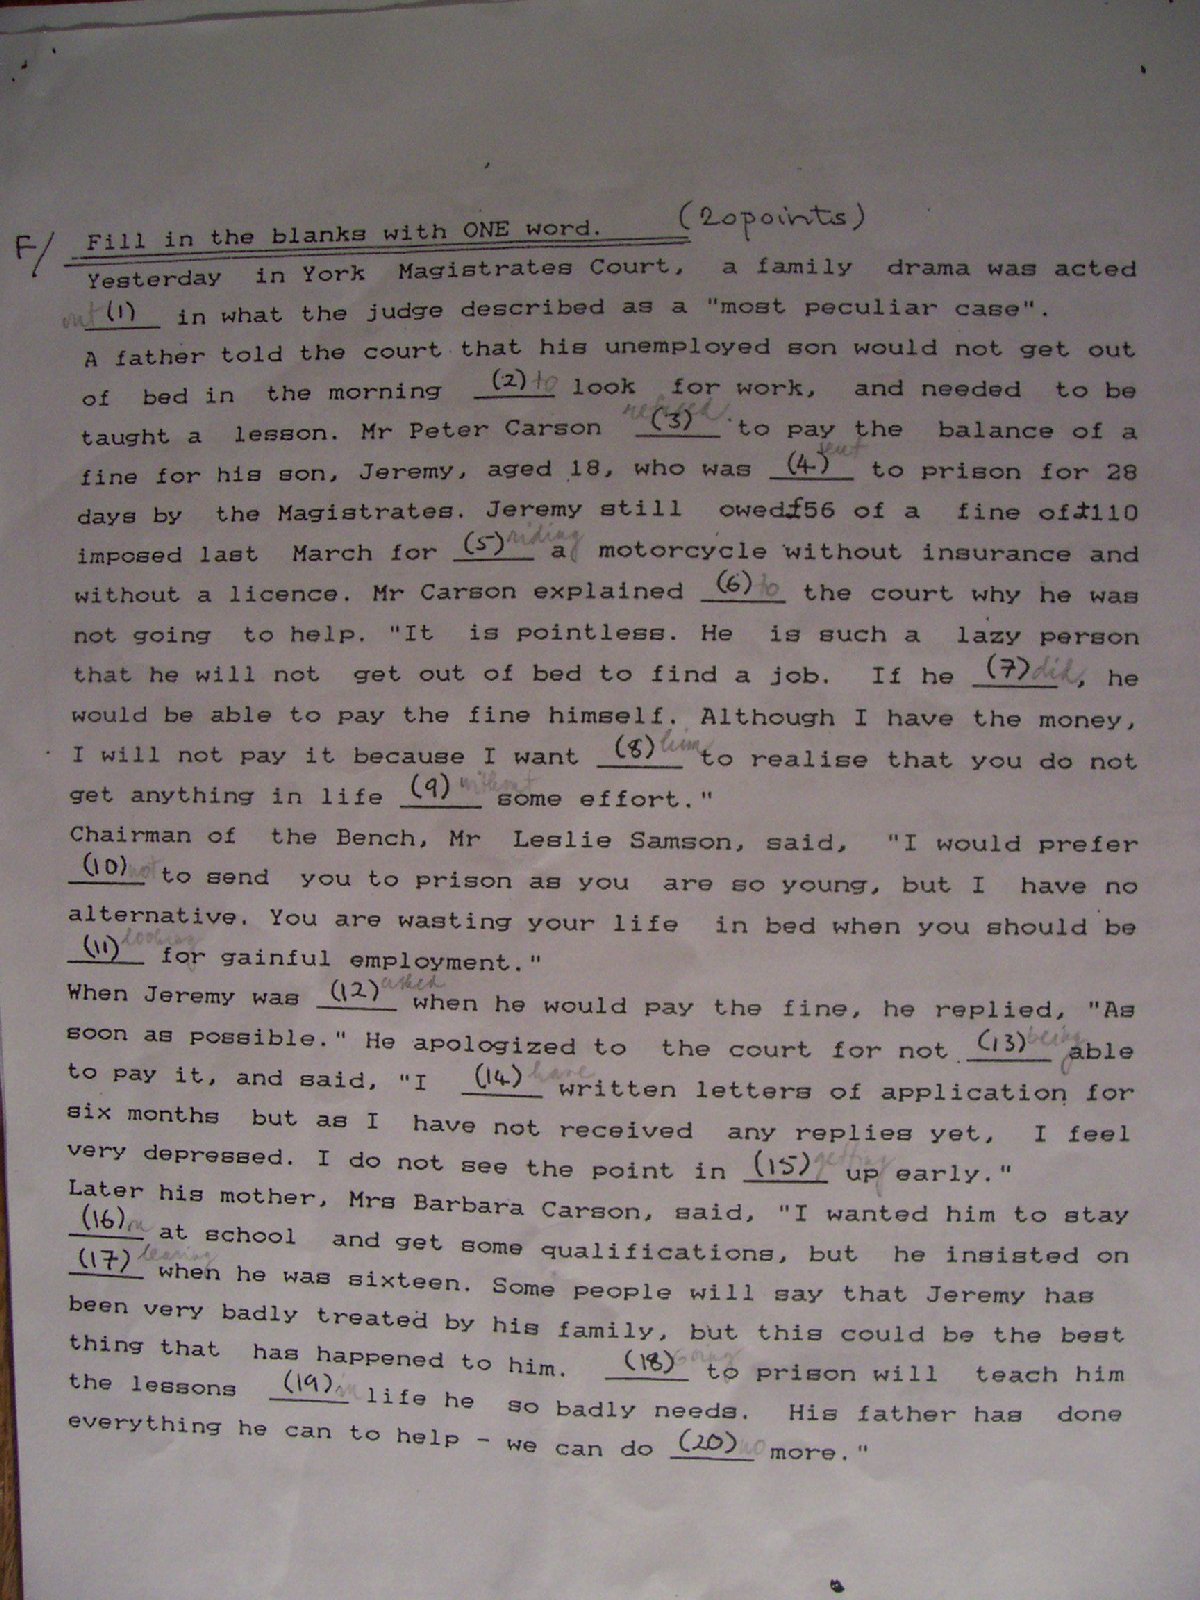 F/ Fill in the blanks with ONE word. (20 points)
Yesterday in York Magistrates Court, a family drama was acted
out (1) in what the judge described as a "most peculiar case".
A father told the court that his unemployed son would not get out
of bed in the morning (2) to look for work, and needed to be
taught a lesson. Mr Peter Carson refused (3) to pay the balance of a
fine for his son, Jeremy, aged 18, who was (4) sent to prison for 28
days by the Magistrates. Jeremy still owed £56 of a fine of £110
imposed last March for (5) riding a motorcycle without insurance and
without a licence. Mr Carson explained (6) to the court why he was
not going to help. "It is pointless. He is such a lazy person
that he will not get out of bed to find a job. If he (7) did, he
would be able to pay the fine himself. Although I have the money,
I will not pay it because I want (8) him to realise that you do not
get anything in life (9) without some effort."
Chairman of the Bench, Mr Leslie Samson, said, "I would prefer
(10) not to send you to prison as you are so young, but I have no
alternative. You are wasting your life in bed when you should be
(11) looking for gainful employment."
When Jeremy was (12) asked when he would pay the fine, he replied, "As
soon as possible." He apologized to the court for not (13) being able
to pay it, and said, "I (14) have written letters of application for
six months but as I have not received any replies yet, I feel
very depressed. I do not see the point in (15) getting up early."
Later his mother, Mrs Barbara Carson, said, "I wanted him to stay
(16) on at school and get some qualifications, but he insisted on
(17) leaving when he was sixteen. Some people will say that Jeremy has
been very badly treated by his family, but this could be the best
thing that has happened to him. (18) Going to prison will teach him
the lessons (19) in life he so badly needs. His father has done
everything he can to help - we can do (20) no more."